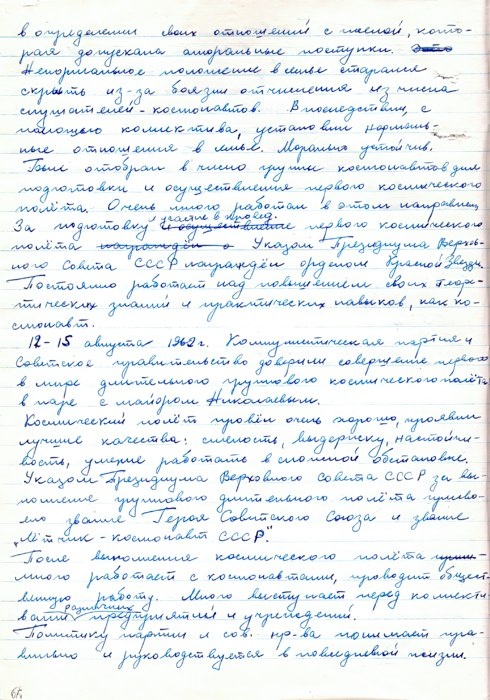 в определении своих отношений с женой, кото-
рая допускала аморальные поступки.
Ненормальное положение в семье старался
скрыть из-за боязни отчисления из числа
слушателей-космонавтов. Впоследствии, с
помощью коллектива, установил нормаль-
ные отношения в семье. Морально устойчив.
Был отобран в число группы космонавтов для
подготовки и осуществления первого космического
полёта. Очень много работал в этом направлении.
За подготовку и участие в провед. первого космического
полёта Указом Президиума Верхов-
ного Совета СССР награждён орденом Красной Звезды.
Постоянно работает над повышением своих теоре-
тических знаний и практических навыков, как ко-
смонавт.
12-15 августа 1962 г. Коммунистическая партия и
Советское правительство доверили совершение первого
в мире длительного группового космического полёта
в паре с майором Николаевым.
Космический полёт провёл очень хорошо, проявил
лучшие качества: смелость, выдержку, настойчи-
вость, умение работать в сложной обстановке.
Указом Президиума Верховного Совета СССР за вы-
полнение группового длительного полёта присво-
ено звание Героя Советского Союза и звание
„Лётчик-космонавт СССР".
После выполнения космического полёта
много работает с космонавтами, проводит общест-
венную работу. Много выступает перед коллекти-
вами различных предприятий и учреждений.
Политику партии и сов. пр-ва понимает пра-
вильно и руководствуется в повседневной жизни.